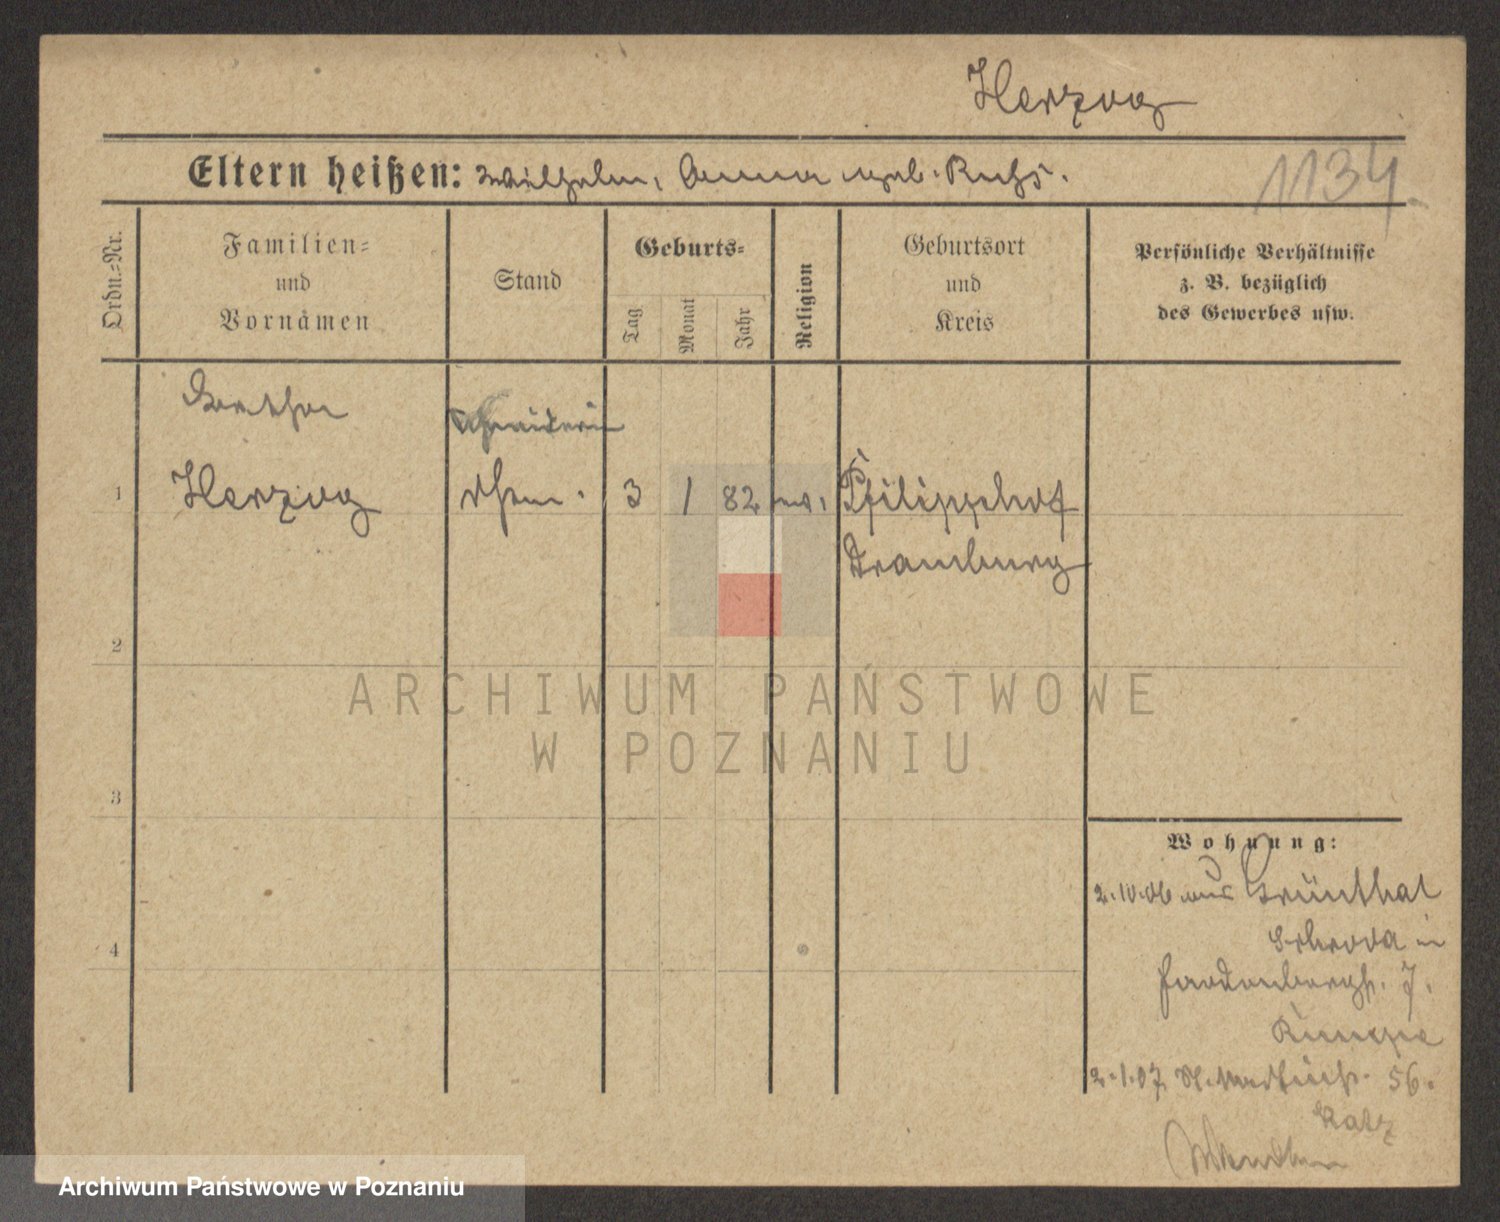 Herzog
Eltern heißen: Wilhelm, Anna geb. Ruhs.
1134
Ordn.=Nr.
Familien=
und
Vornamen
Stand
Geburts=
Tag
Monat
Jahr
Religion
Geburtsort
und
Kreis
Persönliche Verhältnisse
z. B. bezüglich
des Gewerbes usw.
Schneiderin
1 Herzog 3 1 82 ev. Philippshof
Dramburg
2
ARCHIWUM PAŃSTWOWE
W POZNANIU
3
Wohnung:
2.10.06 aus Grünthal
Schroda in
4
7.
2.1.07 56.
Katz
Archiwum Państwowe w Poznaniu